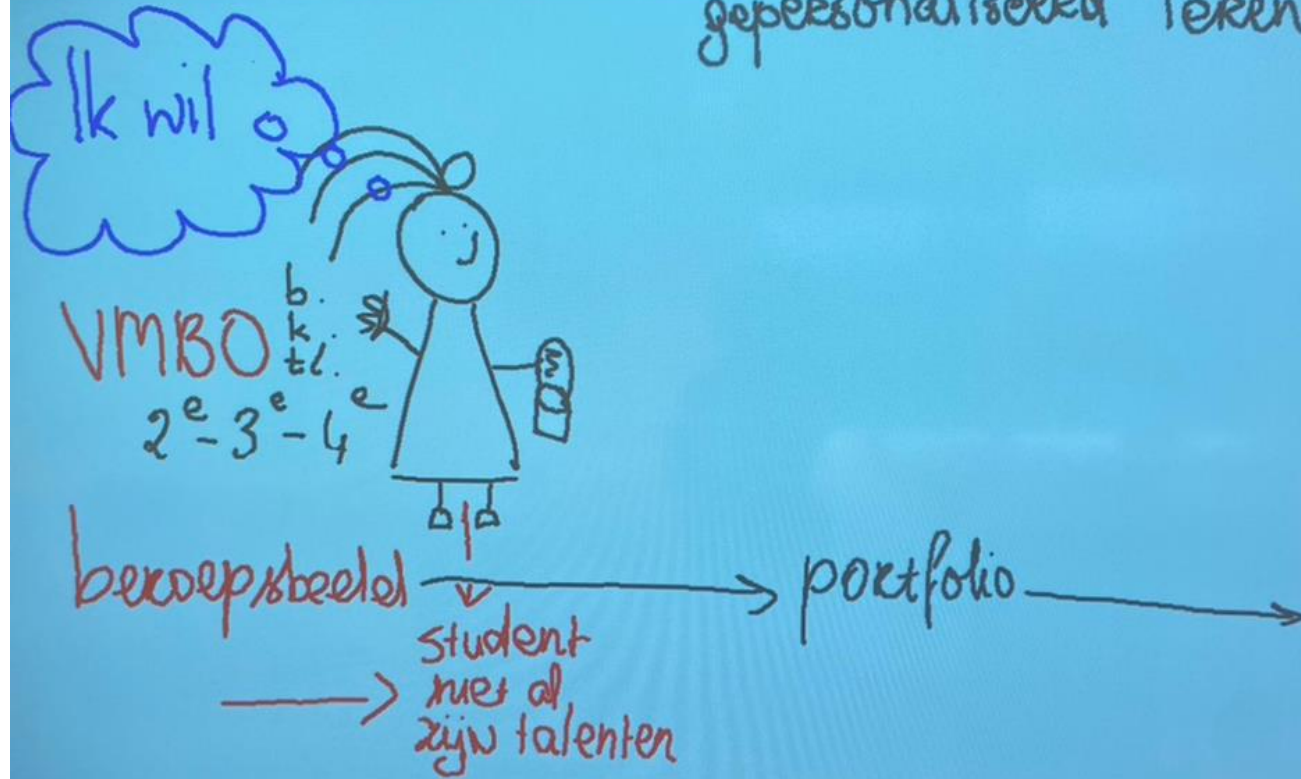 gepersonaliseerd leren
Ik wil
VMBO
b.
k.
tl.
2e - 3e - 4e
beroepsbeeld
portfolio
student
met al
zijn talenten